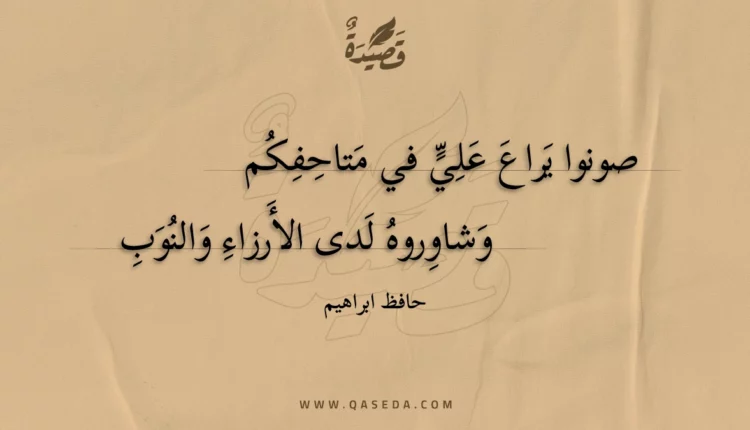 قَصِيدَةٌ
صونوا يَراعَ عَلِيٍّ في مَتاحِفِكُم
وَشاوِروهُ لَدى الأَرزاءِ وَالنُوَبِ
حافظ ابراهيم
WWW.QASEDA.COM